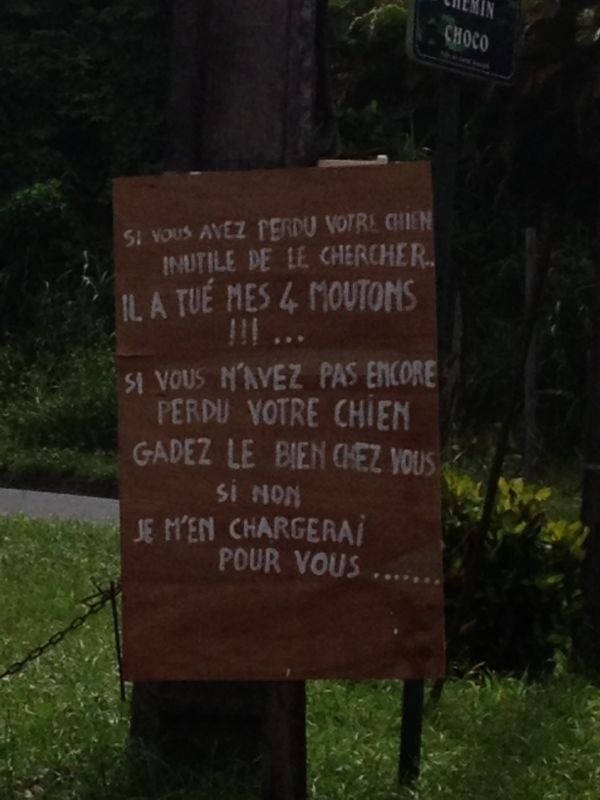 CHEMIN
CHOCO
SI VOUS AVEZ PERDU VOTRE CHIEN
INUTILE DE LE CHERCHER..
IL A TUÉ MES 4 MOUTONS
!!! ...
SI VOUS N'AVEZ PAS ENCORE
PERDU VOTRE CHIEN
GADEZ LE BIEN CHEZ VOUS
SI NON
JE M'EN CHARGERAI
POUR VOUS .......